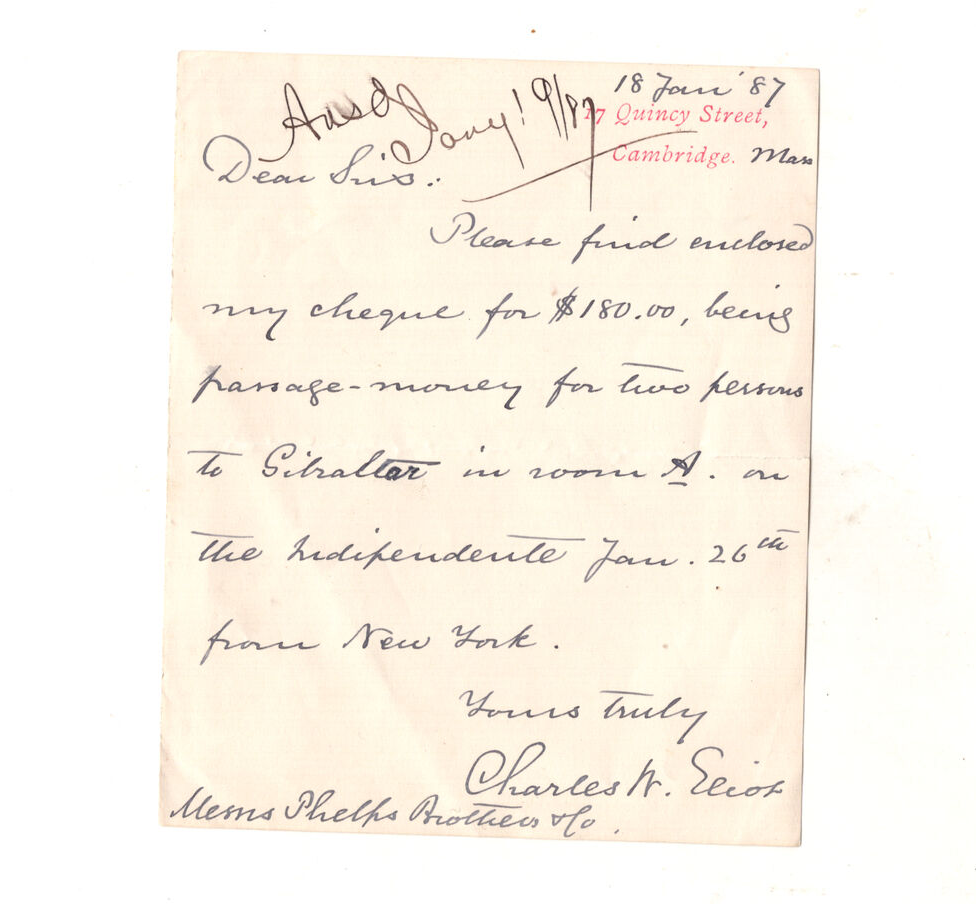 18 Jan' 87
Ansd Jany 19/87
17 Quincy Street,
Cambridge. Mass
Dear Sirs:
Please find enclosed
my cheque for $180.00, being
passage-money for two persons
to Gibraltar in room A. on
the Indipendente Jan. 26th
from New York.
Yours truly
Charles W. Eliot
Messrs Phelps Brothers & Co.